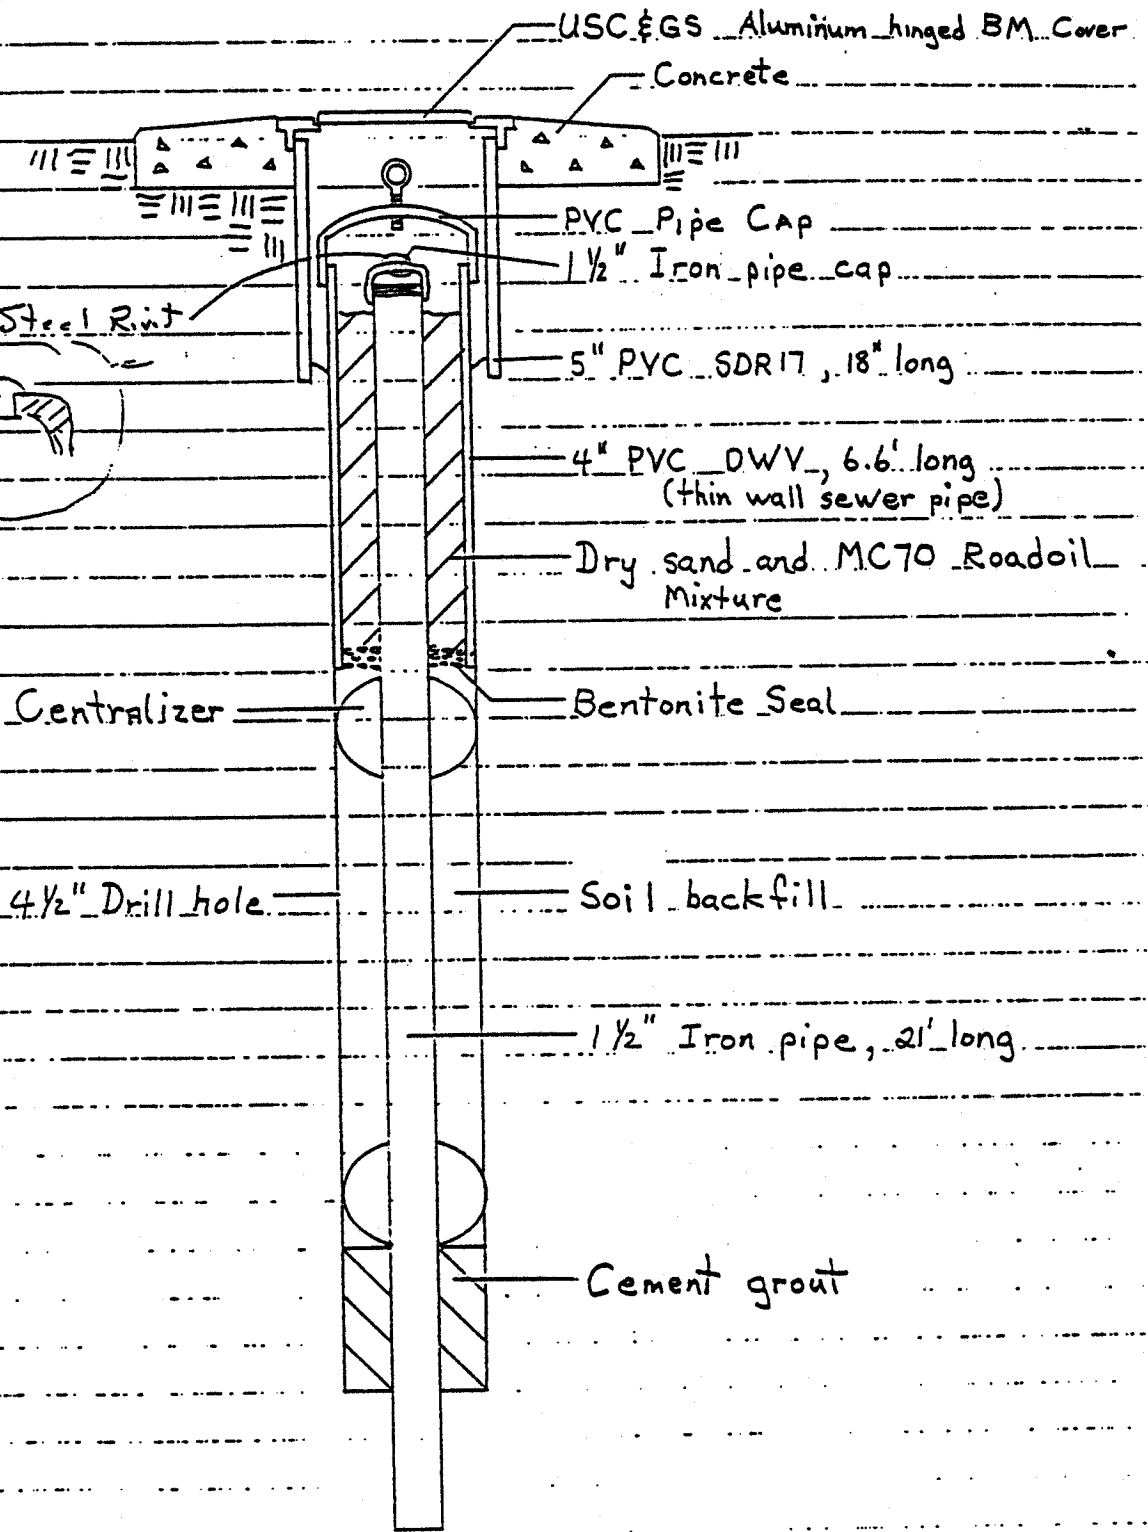 USC&GS Aluminum hinged BM Cover
Concrete
PVC Pipe Cap
1 1/2" Iron pipe cap
Steel Rivit
5" PVC SDR17, 18" long
4" PVC DWV, 6.6' long
(thin wall sewer pipe)
Dry sand and MC70 Roadoil
Mixture
Centralizer
Bentonite Seal
4 1/2" Drill hole
Soil backfill
1 1/2" Iron pipe, 21' long
Cement grout